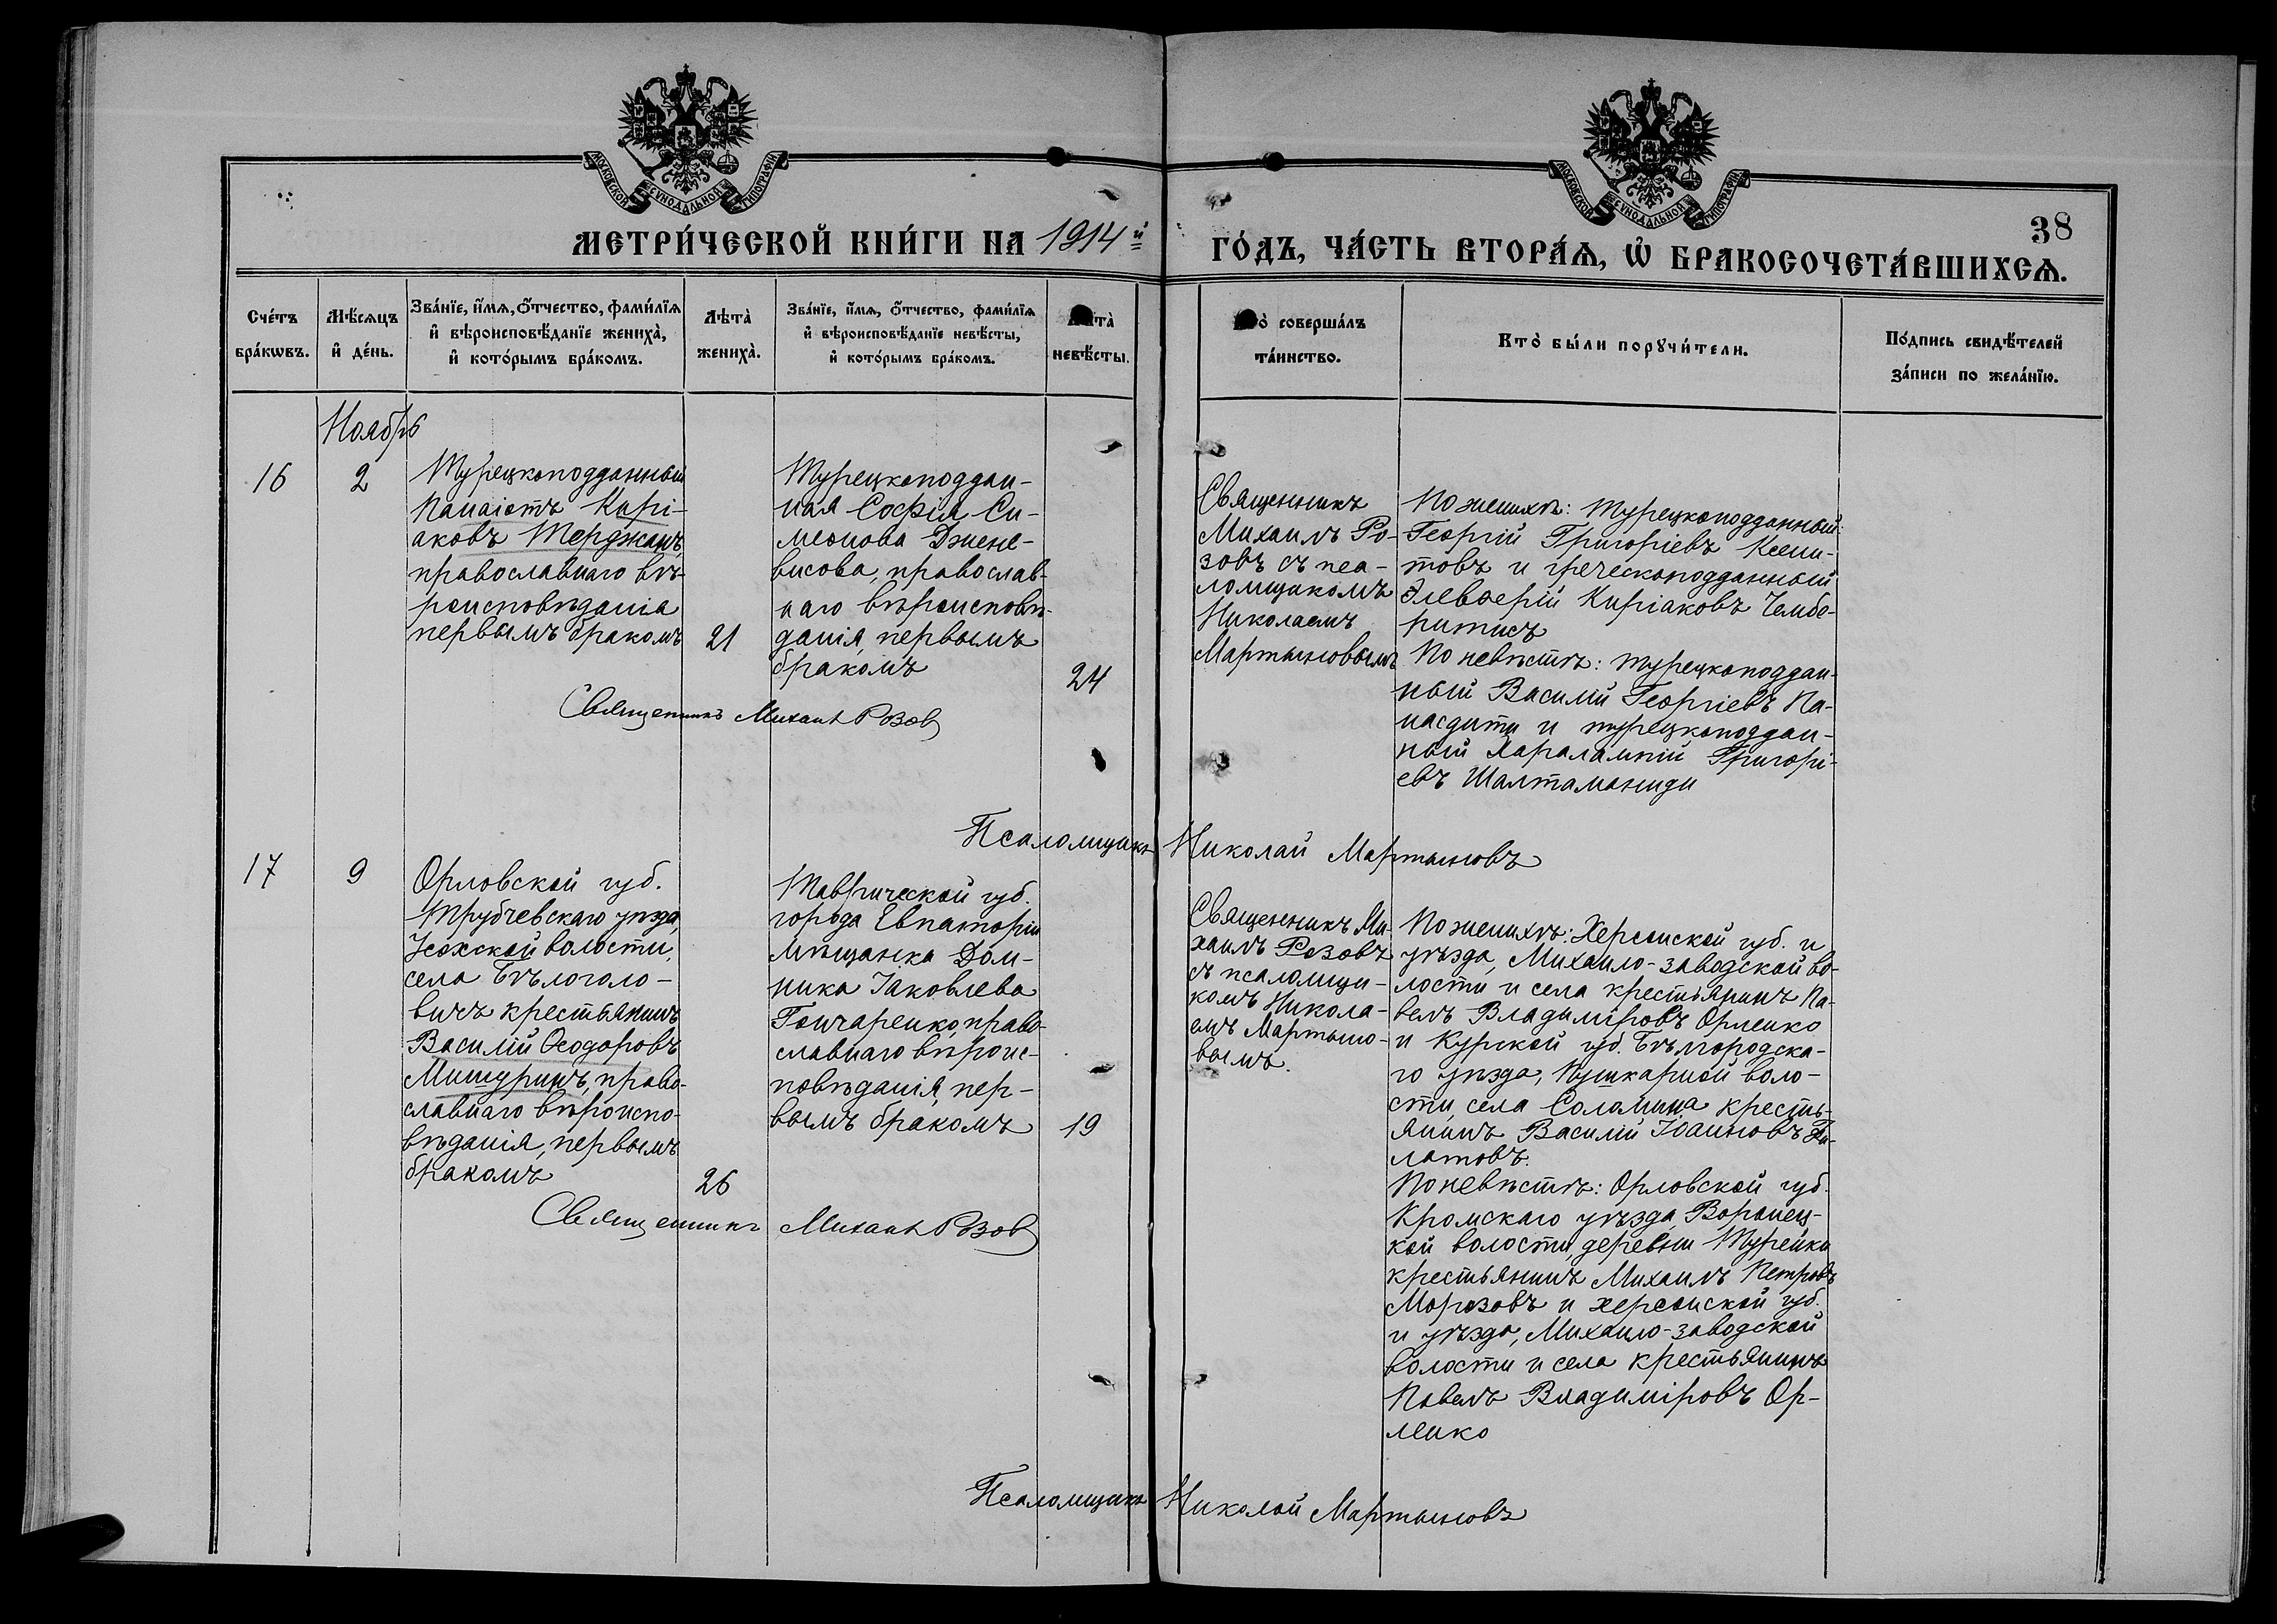 МОСКОВСКОЙ СѴНОДАЛЬНОЙ ТИПОГРАФІИ
МОСКОВСКОЙ СѴНОДАЛЬНОЙ ТИПОГРАФІИ
МЕТРИ́ЧЕСКОЙ КНИ́ГИ НА 1914й
ГО́ДЪ, ЧА́СТЬ ВТОРА́Ѧ, Ѡ҆ БРАКОСОЧЕТА́ВШИХСѦ.
38
Сче́тъ
бра́кѡвъ.
Мѣ́сяцъ
и҆ де́нь.
Зва́нїе, и҆́мѧ, ѻ҆́тчество, фами́лїѧ
и҆ вѣроисповѣ́данїе жениха̀,
и҆ кото́рымъ бра́комъ.
Лѣ́та̀
жениха̀.
Зва́нїе, и҆́мѧ, ѻ҆́тчество, фами́лїѧ
и҆ вѣроисповѣ́данїе невѣ́сты,
и҆ кото́рымъ бра́комъ.
та̀
невѣ́сты.
соверша́лъ
та́инство.
Кто̀ бы́ли порꙋчи́тели.
По́дпись свидѣ́телей
за́писи по жела́нїю.
Ноябрь
16
2
Турецкоподданный
Панаіотъ Кирі-
аковъ Терджанъ,
православнаго вѣ-
роисповѣданія
первымъ бракомъ
21
Турецкоподдан-
ная Софія Си-
меонова Джене-
висова, православ-
наго вѣроисповѣ-
данія, первымъ
бракомъ
24
Священникъ
Михаилъ Ро-
зовъ съ пса-
ломщикомъ
Николаемъ
Мартыновымъ
По женихѣ: турецкоподданный:
Георгій Григоріевъ Ксени-
товъ и греческоподданный
Элевѳерій Киріаковъ Чембе-
ритисъ
По невѣстѣ: турецкоподдан-
ный Василій Георгіевъ Па-
насдити и турецкоподдан-
ный Харалампій Григорі-
евъ Шалтаманиди
Священникъ Михаилъ Розовъ
Псаломщикъ Николай Мартыновъ
17
9
Орловской губ.
Трубчевскаго уѣзда,
Усохской волости,
села Бѣлоголо-
вичъ крестьянинъ
Василій Ѳеодоровъ
Мишуринъ, право-
славнаго вѣроиспо-
вѣданія, первымъ
бракомъ
26
Таврической губ.
города Евпаторіи
мѣщанка Дом-
ника Іаковлева
Гончаренко, право-
славнаго вѣроис-
повѣданія, пер-
вымъ бракомъ
19
Священникъ Ми-
хаилъ Розовъ
съ псаломщи-
комъ Никола-
емъ Мартыно-
вымъ.
По женихѣ: Херсонской губ. и
уѣзда, Михаило-заводской во-
лости и села крестьянинъ Па-
велъ Владиміровъ Орленко
и Курской губ. Бѣлгородска-
го уѣзда, Пушкарной воло-
сти, села Соломина кресть-
янинъ Василій Іоанновъ
латовъ.
По невѣстѣ: Орловской губ.
Кромскаго уѣзда, Воронец-
кой волости, деревни Турейки
крестьянинъ Михаилъ Петровъ
Морозовъ и Херсонской губ.
и уѣзда, Михаило-заводской
волости и села крестьянинъ
Павелъ Владиміровъ Ор-
ленко
Священникъ Михаилъ Розовъ
Псаломщикъ Николай Мартыновъ